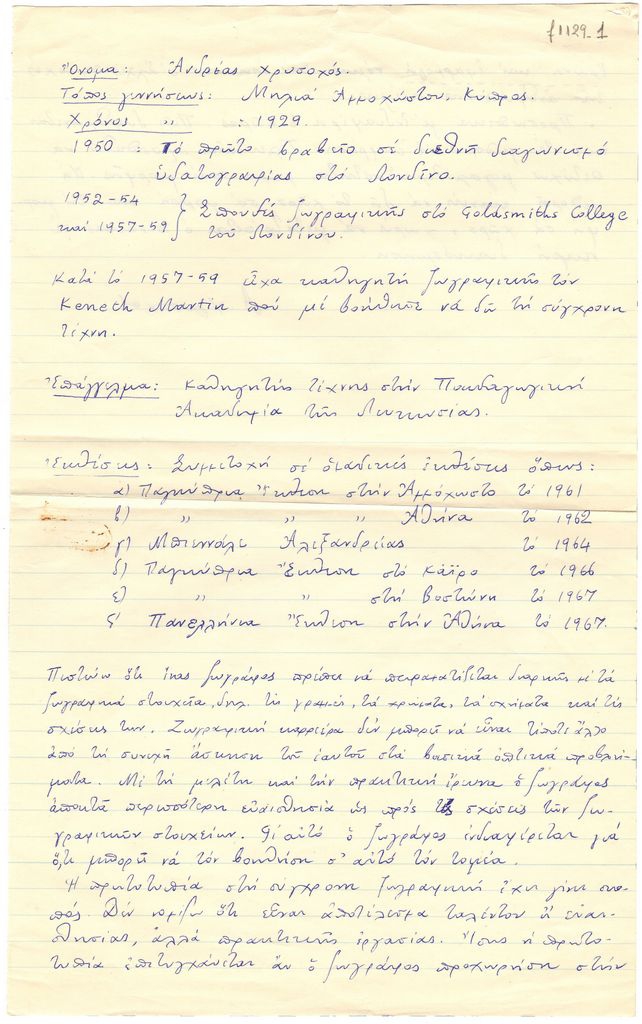 f1129_1
Ὄνομα: Ἀνδρέας Χρυσοχός.
Τόπος γεννήσεως: Μηλιά Ἀμμοχώστου, Κύπρος.
Χρόνος „ : 1929.
1950 : Τό πρῶτο βραβεῖο σέ διεθνῆ διαγωνισμό
ὑδατογραφίας στό Λονδῖνο.
1952-54
καί 1957-59 } Σπουδές ζωγραφικῆς στό Goldsmiths College
τοῦ Λονδίνου.
Κατά τό 1957-59 εἶχα καθηγητή ζωγραφικῆς τόν
Keneth Martin πού μέ βοήθησε νά δῶ τή σύγχρονη
τέχνη.
Ἐπάγγελμα: Καθηγητής τέχνης στήν Παιδαγωγική
Ἀκαδημία τῆς Λευκωσίας.
Ἐκθέσεις: Συμμετοχή σέ ὁμαδικές ἐκθέσεις ὅπως:
α) Παγκύπρια Ἔκθεση στήν Ἀμμόχωστο τό 1961
β) „ „ „ Ἀθήνα τό 1962
γ) Μπιεννάλε Ἀλεξανδρείας τό 1964
δ) Παγκύπρια Ἔκθεση στό Κάϊρο τό 1966
ε) „ „ στή Βοστώνη τό 1967
ς' Πανελλήνια Ἔκθεση στήν Ἀθήνα τό 1967.
Πιστεύω ὅτι ἕνας ζωγράφος πρέπει νά πειραματίζεται διαρκῶς μέ τά
ζωγραφικά στοιχεῖα, δηλ. τίς γραμμές, τά χρώματα, τά σχήματα καί τίς
σχέσεις των. Ζωγραφική καρριέρα δέν μπορεῖ νά εἶναι τίποτε ἄλλο
ἀπό τή συνεχῆ ἄσκηση τοῦ ἑαυτοῦ στά βασικά ὀπτικά προβλή-
ματα. Μέ τή μελέτη καί τήν πρακτική ἔρευνα ὁ ζωγράφος
ἀποκτᾶ περισσότερη εὐαισθησία ὡς πρός τίς σχέσεις τῶν ζω-
γραφικῶν στοιχείων. Γι' αὐτό ὁ ζωγράφος ἐνδιαφέρεται γιά
ὅ,τι μπορεῖ νά τόν βοηθήση σ' αὐτό τόν τομέα.
Ἡ πρωτοτυπία στή σύγχρονη ζωγραφική ἔχει γίνει σκο-
πός. Δέν νομίζω ὅτι εἶναι ἀποτέλεσμα ταλέντου ἤ εὐαι-
σθησίας, ἀλλά πρακτικῆς ἐργασίας. Ἴσως ἡ πρωτο-
τυπία ἐπιτυγχάνεται ἄν ὁ ζωγράφος προχωρήση στήν